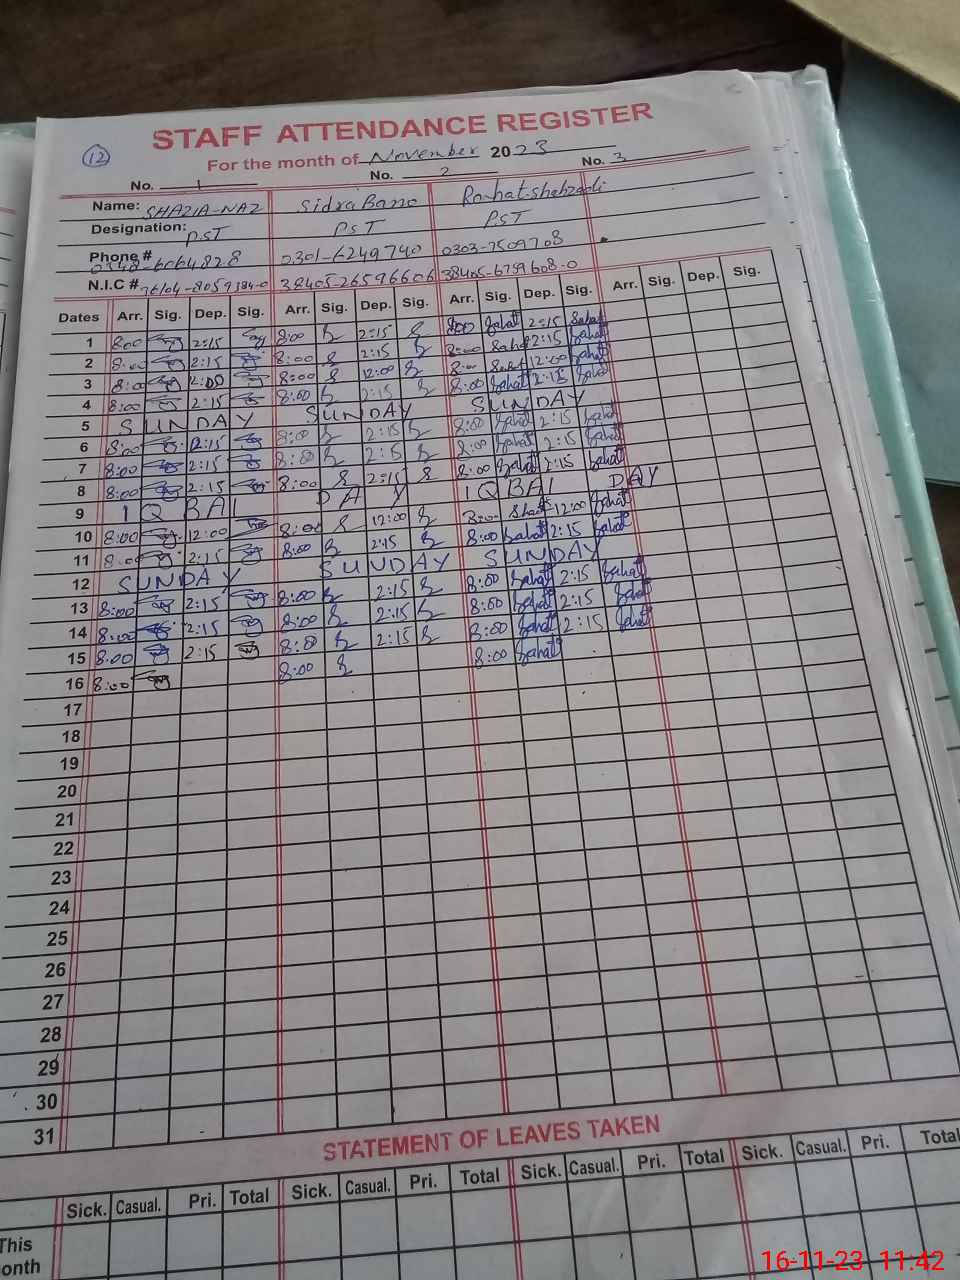 STAFF ATTENDANCE REGISTER
12
For the month of November 2023
No. 1 No. 2 No. 3
Name: SHAZIA-NAZ Sidra Bano Rahat-shahzadi
Designation: PST PST PST
Phone # 0348-6064828 0301-6249740 0303-7509708
N.I.C # 38405-26596606 38405-6759608-0
Dates Arr. Sig. Dep. Sig. Arr. Sig. Dep. Sig. Arr. Sig. Dep. Sig. Arr. Sig. Dep. Sig.
1 8:00 2:15 8:00 2:15 8:00 2:15
2 8:00 2:15 8:00 2:15 8:00 2:15
3 8:00 2:00 8:00 12:00 8:00 12:00
4 8:00 2:15 8:00 2:15 8:00 2:15
5 SUNDAY SUNDAY SUNDAY
6 8:00 2:15 8:00 2:15 8:00 2:15
7 8:00 2:15 8:00 2:15 8:00 2:15
8 8:00 2:15 8:00 2:15 8:00 2:15
9 IQBAL DAY IQBAL DAY
10 8:00 12:00 8:00 12:00 8:00 12:00
11 8:00 2:15 8:00 2:15 8:00 2:15
12 SUNDAY SUNDAY SUNDAY
13 8:00 2:15 8:00 2:15 8:00 2:15
14 8:00 2:15 8:00 2:15 8:00 2:15
15 8:00 2:15 8:00 2:15 8:00 2:15
16 8:00 8:00 8:00
17
18
19
20
21
22
23
24
25
26
27
28
29
30
31
STATEMENT OF LEAVES TAKEN
Sick. Casual. Pri. Total Sick. Casual. Pri. Total Sick. Casual. Pri. Total Sick. Casual. Pri. Total
This
onth
16-11-23 11:42